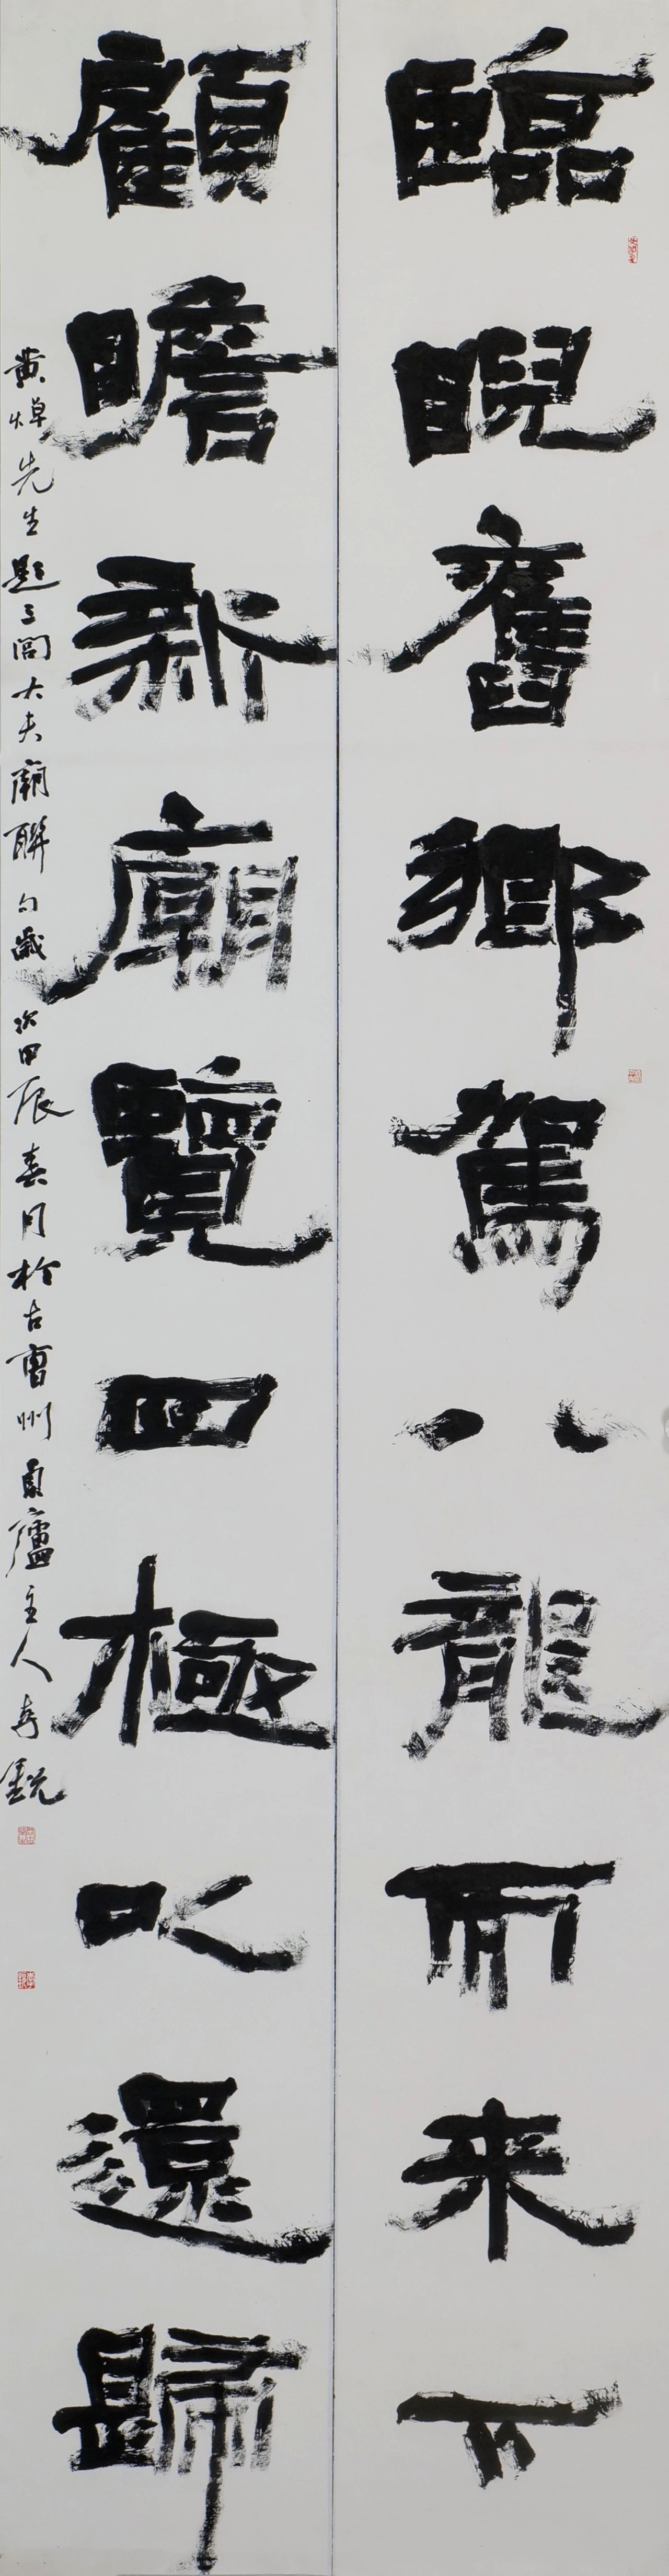 臨睨舊鄉駕八龍而来下
顧瞻新廟覽四極以還歸
黄焯先生題三閭大夫廟聯句歲次甲辰春月於古曹州 廬主人李銳